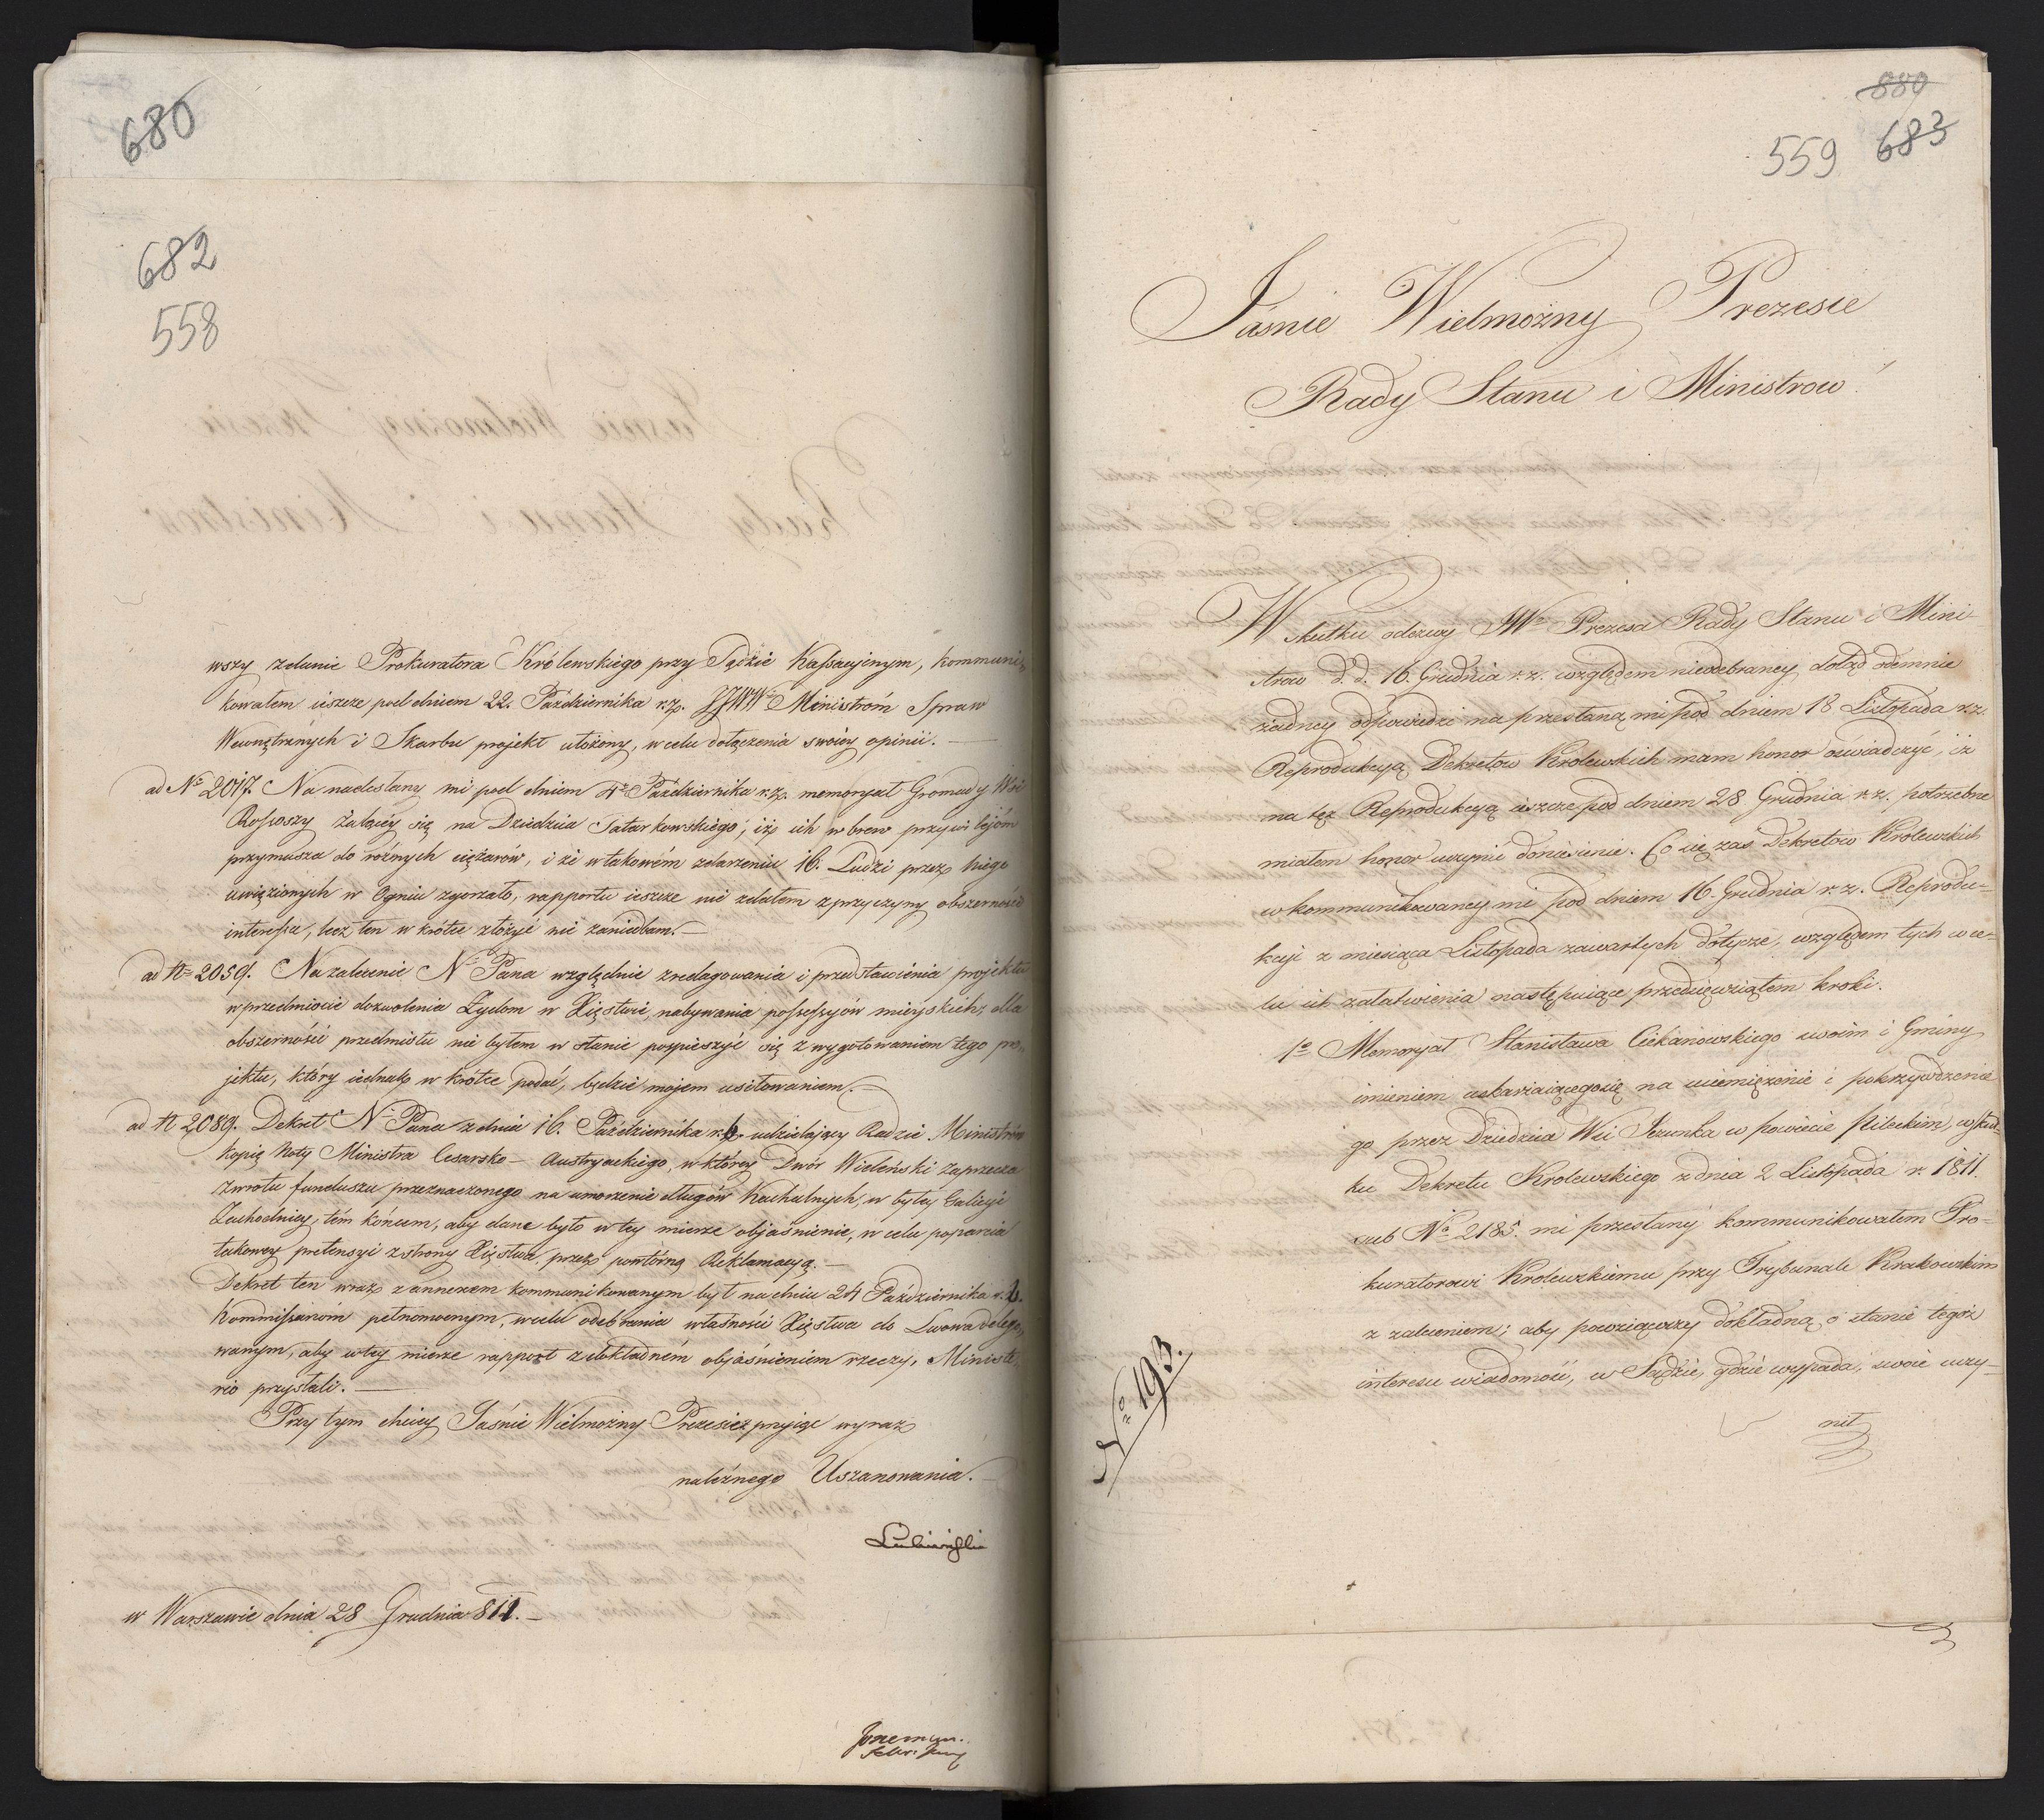 680
682
558
wszy zdanie Prokuratora Królewskiego przy Sądzie Kassacyjnym, kommuni-
kowałem ieszcze pod dniem 22. Października r.z. JJWW Ministróm Spraw
Wewnętrznych i Skarbu projekt ułożony, w celu dołączenia swoiey opinii. —
ad No 2017. Na nadesłany mi pod dniem 4o Października r.z. memoryał Gromady Wsi
Rospszy żalącey się na Dziedzica Tatarkowskiego, iż ich wbrew przywilejóm
przymusza do róźnych ciężarów, i że w takowém zdarzeniu 16. Ludzi przez niego
uwięzionych w Ogniu zgorzało, rapportu ieszcze nie zdałem z przyczyny obszerności
interessu, lecz ten w krótce złożyć nie zaniedbam. —
ad No 2059. Na zalecenie N. Pana względnie zredagowania i przedstawienia projektu
w przedmiocie dozwolenia Żydom w Xięstwie, nabywania possessyów mieyskich, dla
obszerności przedmiotu nie byłem w stanie pospieszyć się z wygotowaniem tego pro-
jektu, który iednak w krótce podać, będzie mojem usiłowaniem. —
ad N 2089. Dekret N. Pana z dnia 16. Października r.b. udzielający Radzie Ministrów
kopią Noty Ministra Cesarsko-Austryackiego, w którey Dwór Wiedeński zaprzecza
zwrotu funduszu przeznaczonego na umorzenie długów Kachalnych, w byłey Galicyi
Zachodniey, tém końcem, aby dane było w tey mierze objaśnienie, w celu poparcia
takowey pretensyi z strony Xięstwa przez powtórną Reklamacyą. —
Dekret ten wraz z annexem kommunikowanym był na dniu 24 Października r.b.
Kommissaróm pełnomocnym, w celu odebrania własności Xięstwa do Lwowa delego-
wanym, aby w tey mierze rapport z dokładném objaśnieniem rzeczy, Ministe-
rio przysłali. —
Przy tym chciey Jaśnie Wielmożny Prezesie przyiąć wyraz
należnego Uszanowania. —
Lubieński
w Warszawie dnia 28 Grudnia 811. —
880
559 683
Jaśnie Wielmożny Prezesie
Rady Stanu i Ministrow!
W skutku odezwy JWo Prezesa Rady Stanu i Mini-
strow d.d. 16. Grudnia r.z. względem nieodebraney dotąd odemnie
żadney odpowiedzi na przesłaną mi pod dniem 18 Listopada r.z.
Reprodukcyą Dekretow Krolewskich mam honor oświadczyć, iż
na tęż Reprodukcyą ieszcze pod dniem 28 Grudnia r.z. potrzebne
miałem honor uczynić doniesienie. Co się zaś Dekretow Krolewskich
w kommunikowaney mi pod dniem 16. Grudnia r.z. Reprodu-
kcyi z miesiąca Listopada zawartych dotycze, względem tych w ce-
lu ich załatwienia następuiące przedsięwziąłem kroki.
1o Memoryał Stanisława Ciekanowskiego swoim i Gminy
imieniem uskarżaiącego się na uciemiężenie i pokrzywdzenie
go przez Dziedzica Wsi Jezunka w powiecie Pileckim, w skut-
ku Dekretu Krolewskiego z dnia 2 Listopada r. 1811.
sub No 2185. mi przesłany kommunikowałem Pro-
kuratorowi Krolewskiemu przy Trybunale Krakowskim
z zaleceniem; aby powziąwszy dokładną o stanie tegoż
interesu wiadomość, w Sądzie, gdzie wypada, swoie uczy-
nił
No 193.